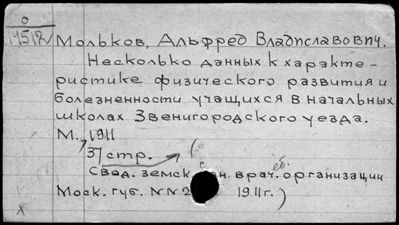 о
19512
Мольков, Альфред Владиславович.
Несколько данных к характе-
ристике физического развития и
болезненности учащихся в начальных
школах Звенигородского уезда.
М., 1911
37 стр. (
Свод. земск. сан. врач. организации
Моск. губ. NN 2 1911 г.)